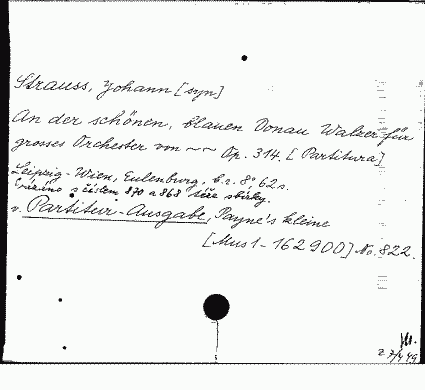 Strauss, Johann [syn]
An der schönen, blauen Donau Walzer für
grosses Orchester von ~~ Op. 314. [Partitura]
Leipzig-Wien, Eulenburg, b.r. 8° 62 s.
s číslem 870 a 868 téže sbírky.
v. Partitur-Ausgabe, Payne's kleine
[Mus 1 - 162900] No. 822.